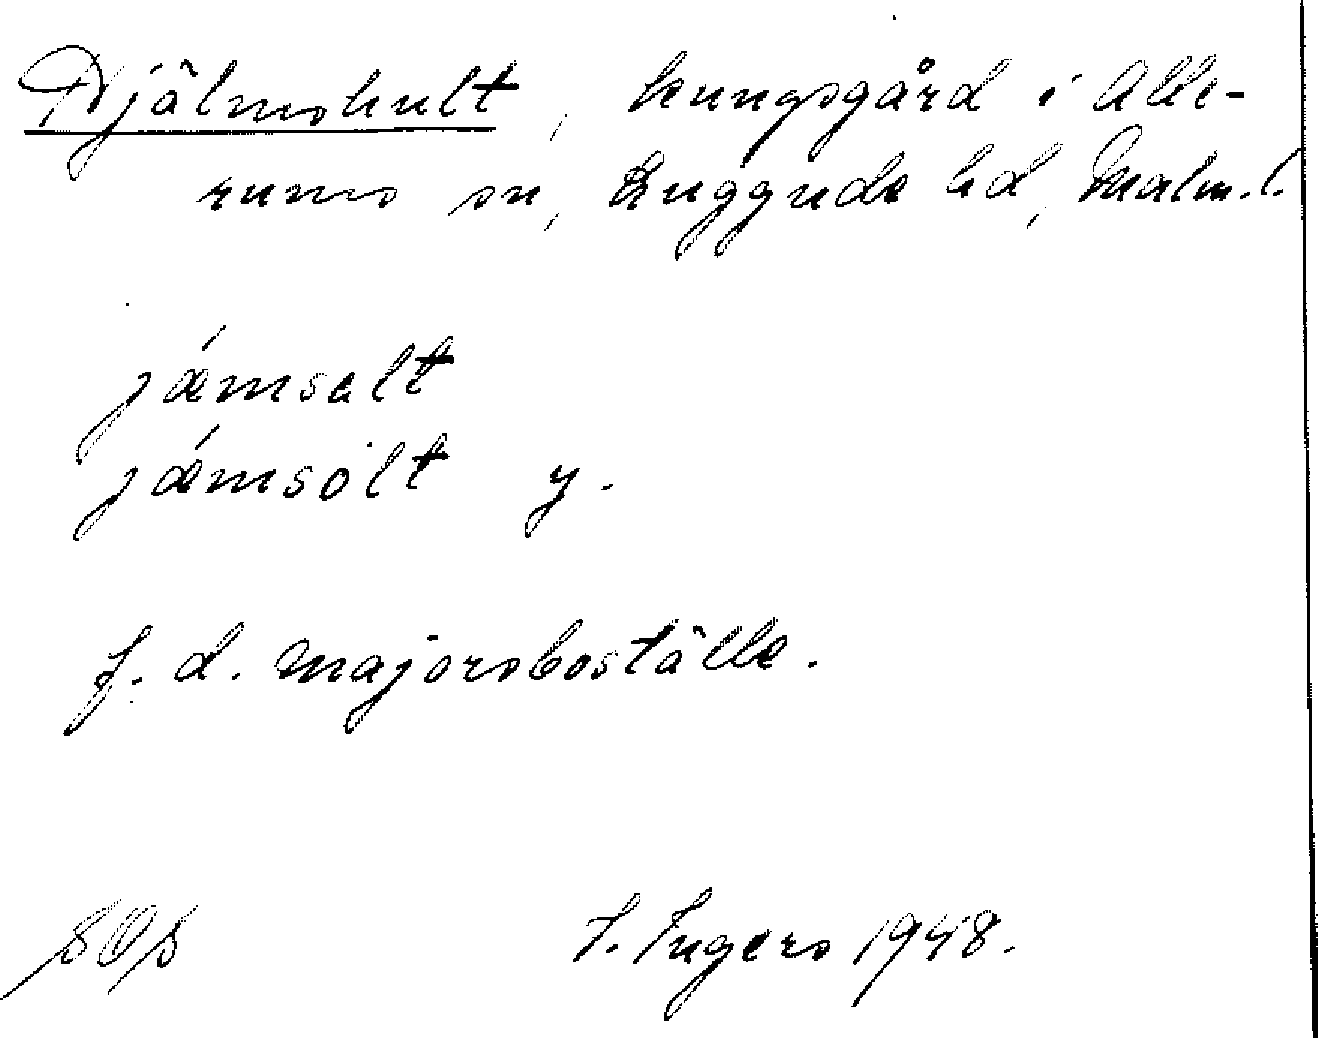 Hjälmshult, kungsgård i Alle-
rums sn, Luggude hd, Malm.l.
jǽmsalt
jǽmsölt y.
f. d. majorsboställe.
SOS I. Ingers 1948.